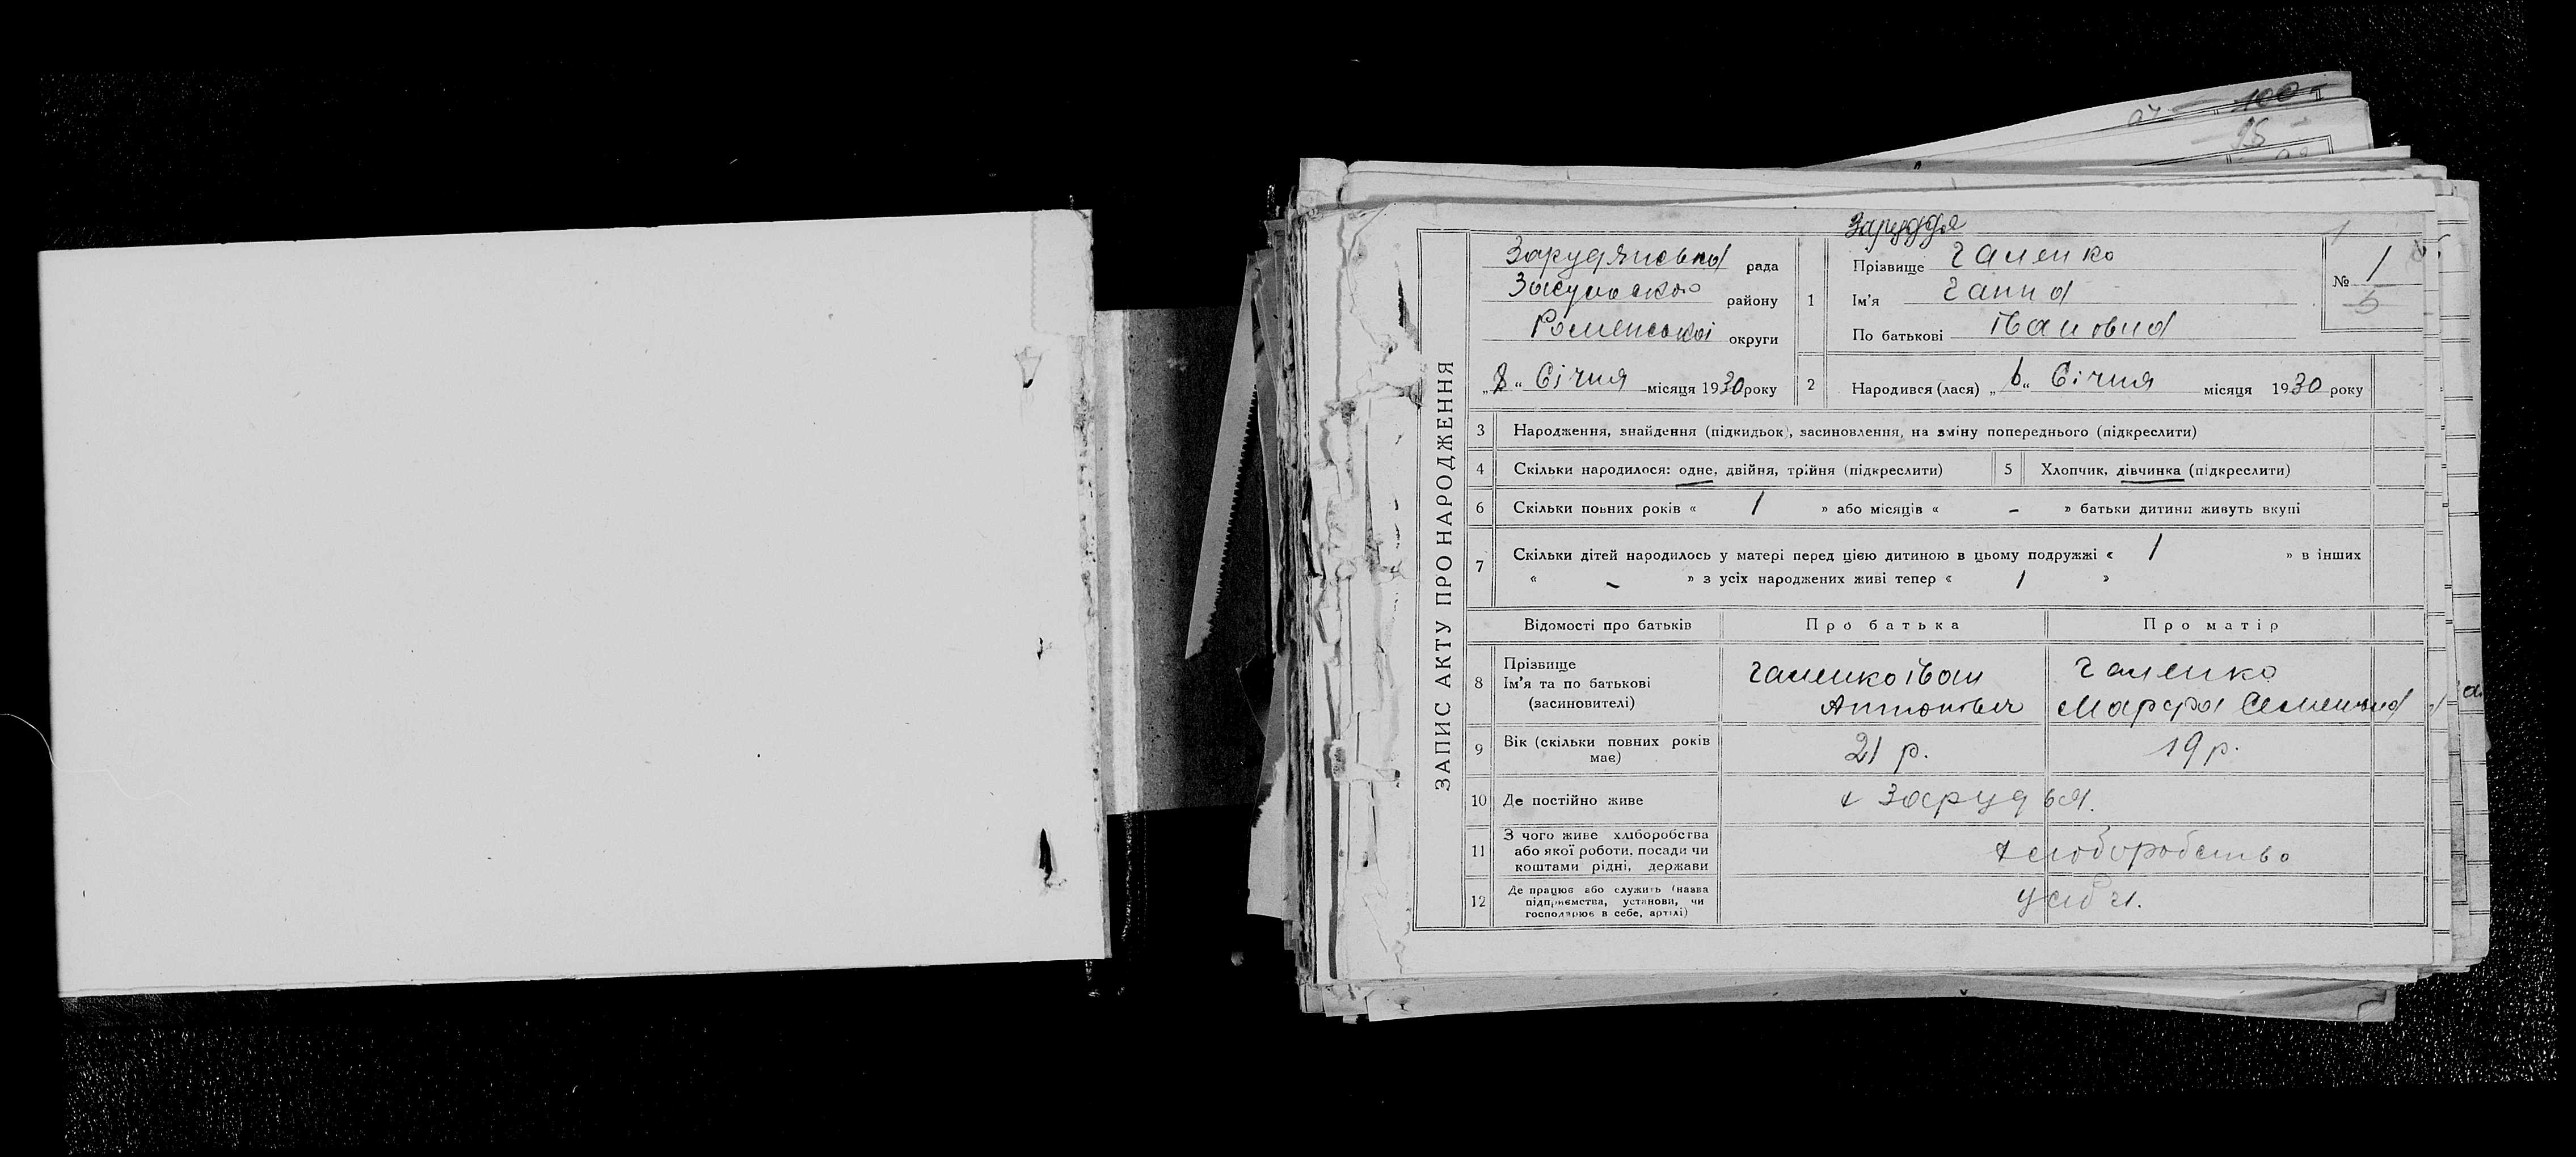 100
95
Заруддя
ЗАПИС АКТУ ПРО НАРОДЖЕННЯ
Зарудянська рада
Засульского району
Роменської округи
„8“ Січня місяця 1930 року
1
Прізвище Галенко
Ім'я Ганна
По батькові Івановна
№ 1
5
2 Народився (лася) „6“ Січня місяця 1930 року
3 Народження, знайдення (підкидьок), засиновлення, на зміну попереднього (підкреслити)
4 Скільки народилося: одне, двійня, трійня (підкреслити) 5 Хлопчик, дівчинка (підкреслити)
6 Скільки повних років « 1 » або місяців « - » батьки дитини живуть вкупі
7 Скільки дітей народилось у матері перед цією дитиною в цьому подружжі « 1 » в інших
« - » з усіх народжених живі тепер « 1 »
Відомості про батьків Про батька Про матір
8 Прізвище
Ім'я та по батькові
(засиновителі)
Галенко Іван
Антонович
Галенко
Марфа Семеновна
9 Вік (скільки повних років
має)
21 р. 19 р.
10 Де постійно живе х Заруддья.
11 З чого живе хліборобства
або якої роботи, посади чи
коштами рідні, держави
12 Де працює або служить (назва
підприємства, установи, чи
господарює в себе, артілі)